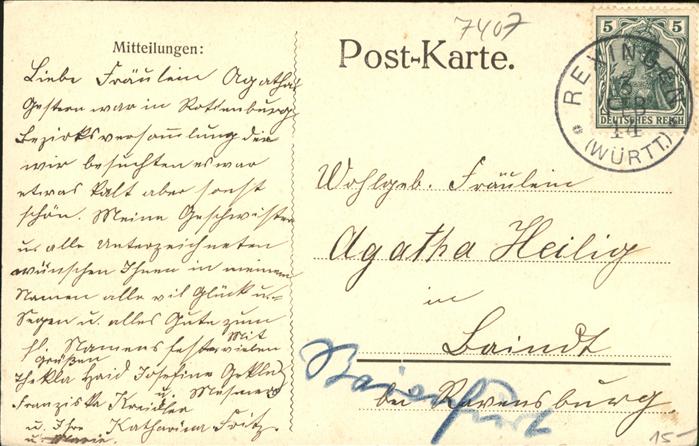 7407
Mitteilungen:
Post-Karte.
5 5
DEUTSCHES REICH
REXINGEN
FEB
14
(WÜRTT.)
Liebe Fräulein Agatha!
Gestern war in Rottenburg
Bezirksversammlung die
wir besuchten es war
etwas kalt aber sonst
schön. Meine Geschwister
u. alle Unterzeichneten
wünschen Ihnen in meinem
Namen alle vil Glück u.
Segen u. alles Gute zum
hl. Namensfeste Mit vielen
Grüßen
Thekla Haid Josefine
Franziska Kreidler u.
u. Ihre Katharina Fritz
u. Marie.
Wohlgeb. Fräulein
Agatha Heilig
in
Baindt
bei Ravensburg
Baienfurt
15-